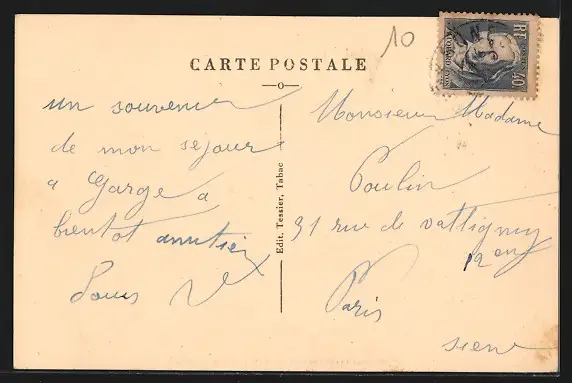 10
CARTE POSTALE
un souvenir
de mon sejour
a Garge a
bientot amitiés
Louis
Edit. Tessier, Tabac
Monsieur Madame
Poulin
31 rue de Wattigny
12 em
Paris
seine
RF
40